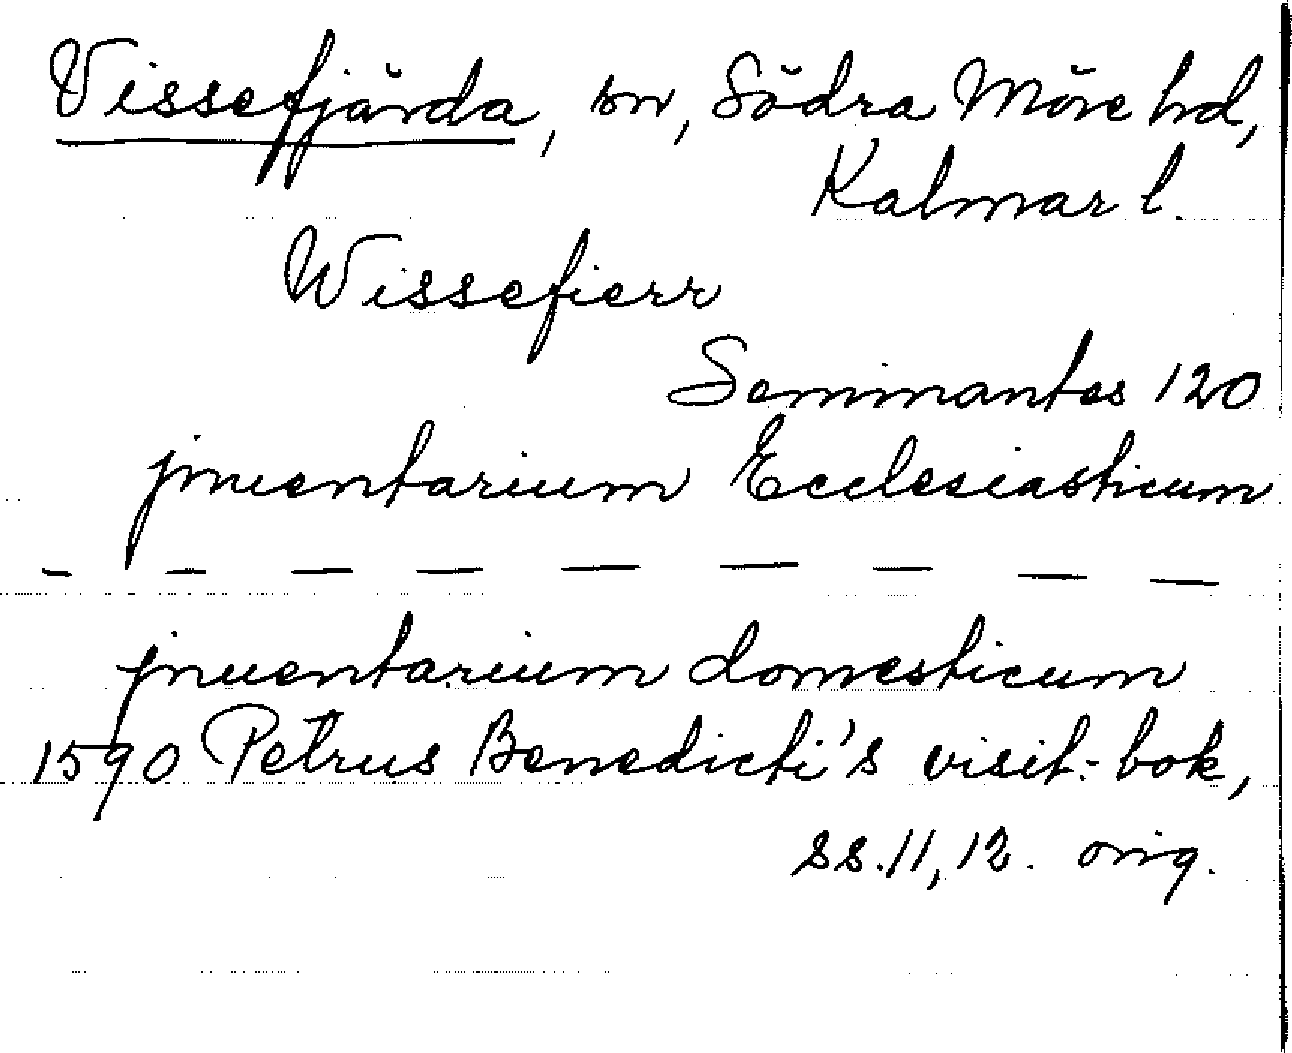 Vissefjärda, sn, Södra Möre hd,
Kalmar l.
Wissefierr
Seminantes 120
jnuentarium Ecclesiasticum
— — — — — — — — —
jnuentarium domesticum
1590 Petrus Benedicti's visit.-bok,
ss. 11, 12. orig.